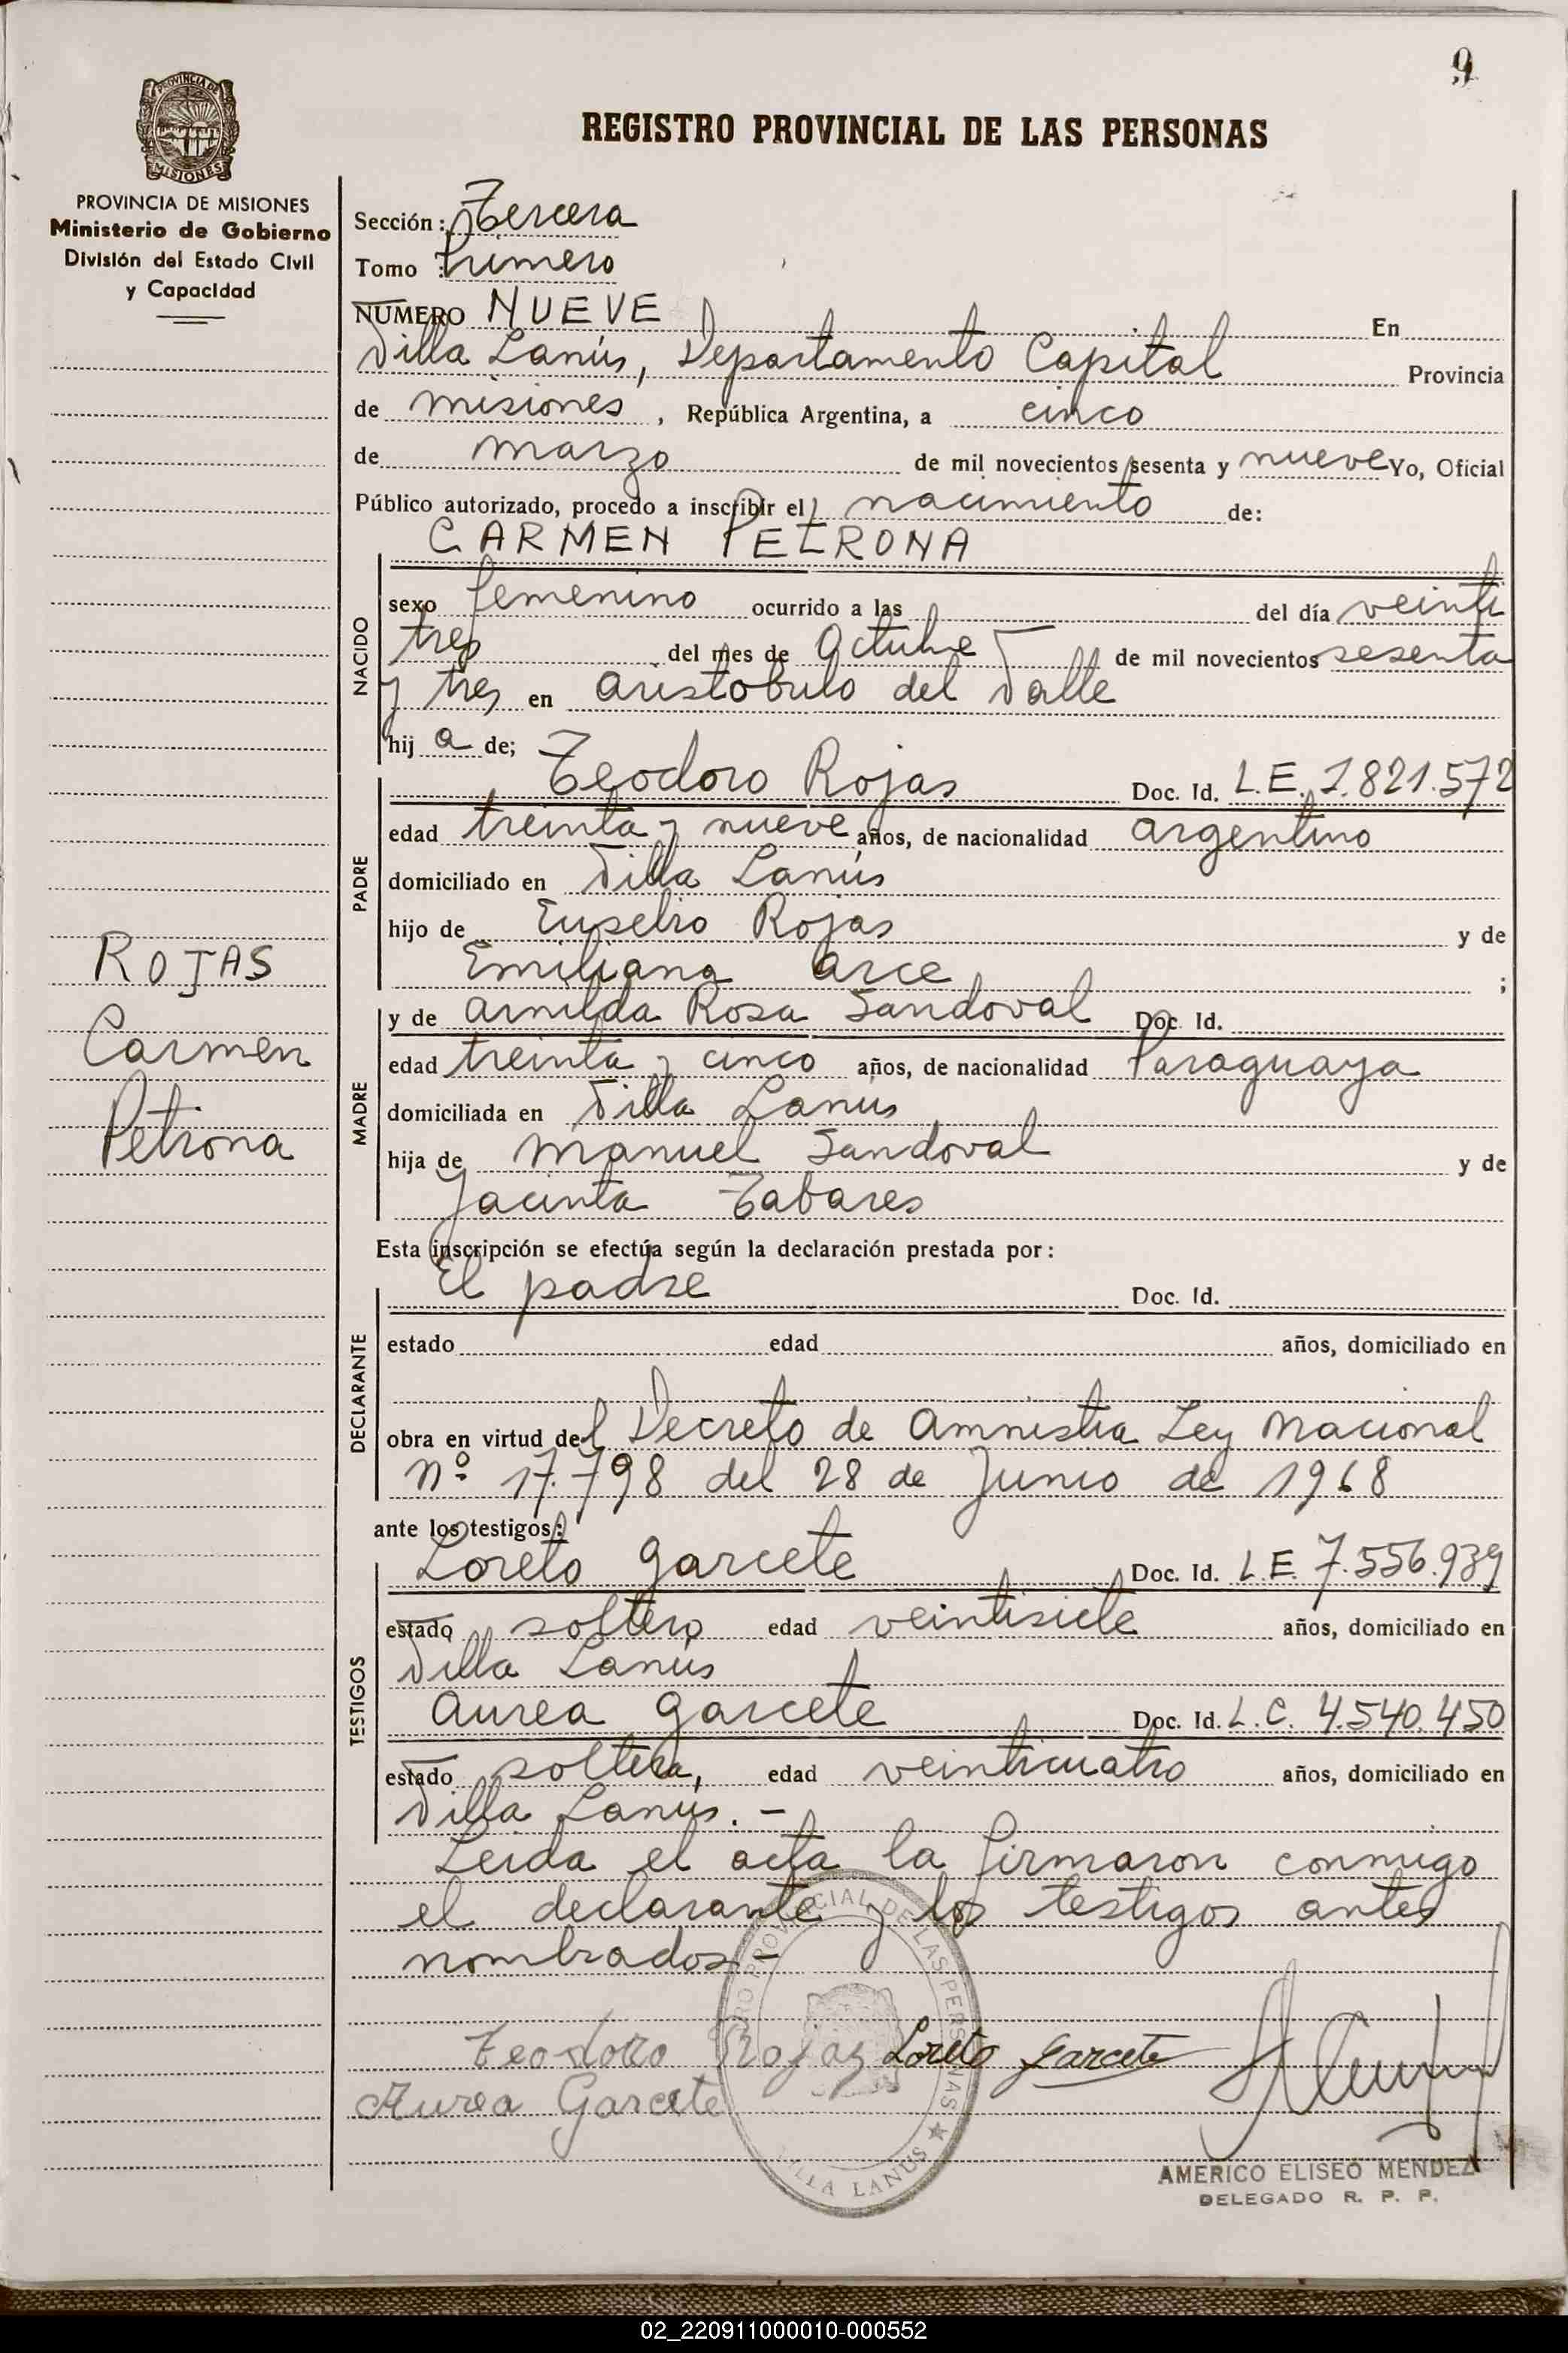 9
PROVINCIA DE
MISIONES
REGISTRO PROVINCIAL DE LAS PERSONAS
PROVINCIA DE MISIONES
Ministerio de Gobierno
División del Estado Civil
y Capacidad
ROJAS
Carmen
Petrona
Sección: Tercera
Tomo : Primero
NUMERO NUEVE En
Villa Lanús, Departamento Capital Provincia
de Misiones, República Argentina, a cinco
de marzo de mil novecientos sesenta y nueve Yo, Oficial
Público autorizado, procedo a inscribir el nacimiento de:
CARMEN PETRONA
NACIDO
sexo femenino ocurrido a las del día veinti
tres del mes de Octubre de mil novecientos sesenta
y tres en Aristobulo del Valle
hij a de;
PADRE
Teodoro Rojas Doc. Id. L.E. 1.821.572
edad treinta y nueve años, de nacionalidad argentino
domiciliado en Villa Lanús
hijo de Eusebio Rojas y de
Emiliana Arce ;
MADRE
y de Arnilda Rosa Sandoval Doc. Id.
edad treinta y cinco años, de nacionalidad Paraguaya
domiciliada en Villa Lanus
hija de Manuel Sandoval y de
Jacinta Tabares
Esta inscripción se efectúa según la declaración prestada por:
DECLARANTE
El padre Doc. Id.
estado edad años, domiciliado en
obra en virtud del Decreto de Amnistia Ley Nacional
Nº 17.798 del 28 de Junio de 1968
ante los testigos:
TESTIGOS
Loreto Garcete Doc. Id. L.E. 7.556.939
estado soltero edad veintisiete años, domiciliado en
Villa Lanús
Aurea Garcete Doc. Id. L.C. 4.540.450
estado soltera, edad veinticuatro años, domiciliado en
Villa Lanús. -
Leida el acta la firmaron conmigo
el declarante y los testigos antes
nombrados -
Teodoro Rojas Loreto Garcete
Aurea Garcete
PROVINCIAL DE LAS PERSONAS
VILLA LANUS
AMERICO ELISEO MENDEZ
DELEGADO R. P. P.
02_220911000010-000552